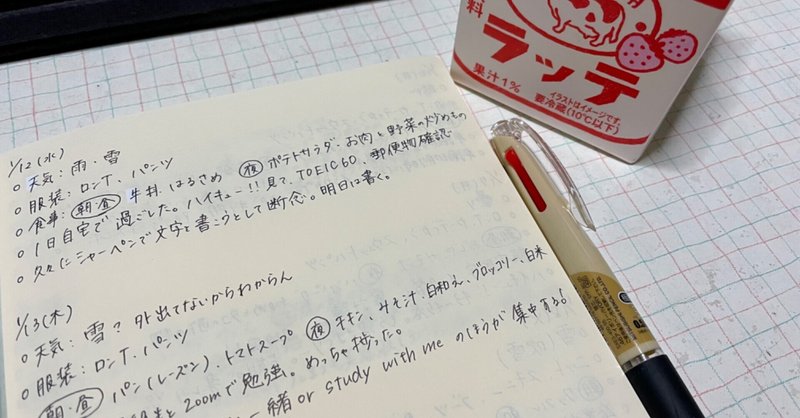 1/12(水)
○天気: 雨・雪
○服装: ロンT、パンツ
○食事: 朝・昼 牛丼、はるさめ 夜 ポテトサラダ、お肉と野菜の炒めもの
○1日自宅で過ごした。ハイキュー!!見て、TOEIC60、郵便物確認
○久々にシャーペンで文字を書こうとして断念。明日は書く。
1/13(木)
○天気: 雪? 外出てないからわからん
○服装: ロンT、パンツ
朝・昼 パン(レーズン)、トマトスープ 夜 チキン、みそ汁、白和え、ブロッコリー、白米
とzoomで勉強。めっちゃ捗った。
一緒 or study with me のほうが集中する。
料
ラッテ
果汁1%
イラストはイメージです。
要冷蔵(10℃以下)